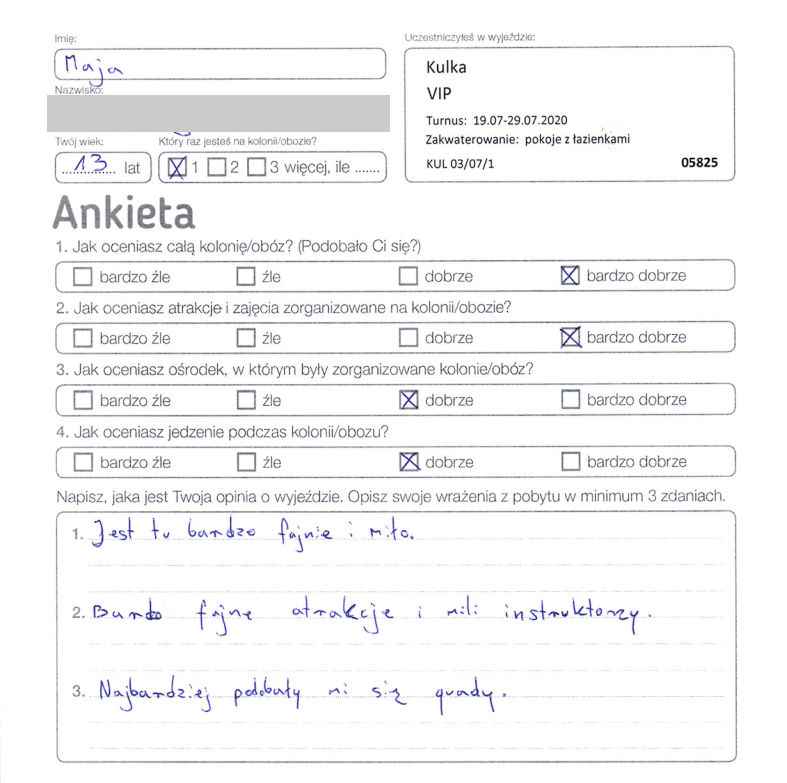 Imię:
Maja
Nazwisko:
Twój wiek:
13 lat
Który raz jesteś na kolonii/obozie?
1 2 3 więcej, ile .......
Uczestniczyłeś w wyjeździe:
Kulka
VIP
Turnus: 19.07-29.07.2020
Zakwaterowanie: pokoje z łazienkami
KUL 03/07/1 05825
Ankieta
1. Jak oceniasz całą kolonię/obóz? (Podobało Ci się?)
bardzo źle źle dobrze bardzo dobrze
2. Jak oceniasz atrakcje i zajęcia zorganizowane na kolonii/obozie?
bardzo źle źle dobrze bardzo dobrze
3. Jak oceniasz ośrodek, w którym były zorganizowane kolonie/obóz?
bardzo źle źle dobrze bardzo dobrze
4. Jak oceniasz jedzenie podczas kolonii/obozu?
bardzo źle źle dobrze bardzo dobrze
Napisz, jaka jest Twoja opinia o wyjeździe. Opisz swoje wrażenia z pobytu w minimum 3 zdaniach.
1. Jest tu bardzo fajnie i miło.
2. Bardo fajne atrakcje i mili instruktorzy.
3. Najbardziej podobały mi się quady.